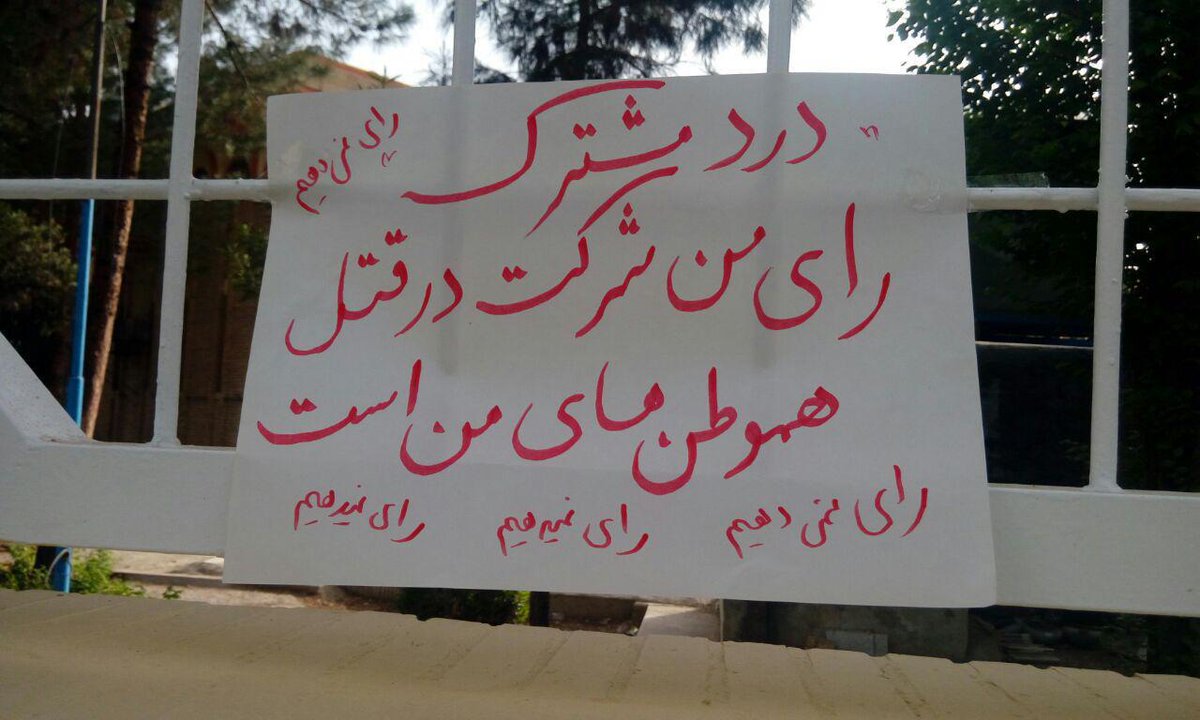 " درد مشترک "
رای نمی دهیم
رای من شرکت در قتل
هموطن های من است
رای نمی دهیم رای نمیدهیم رای نمیدهیم